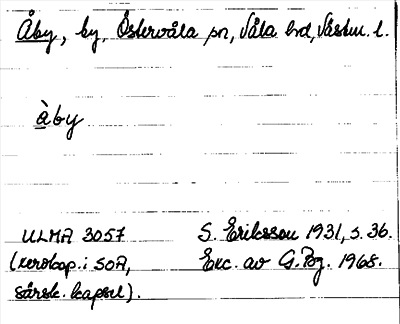 Åby, by, Östervåla sn, Våla hd, Västm. l.
àby
ULMA 3057 S. Eriksson 1931, s. 36.
(xerokop. i SOA, Exc. av G. Bg. 1968.
särsk. kapsel).